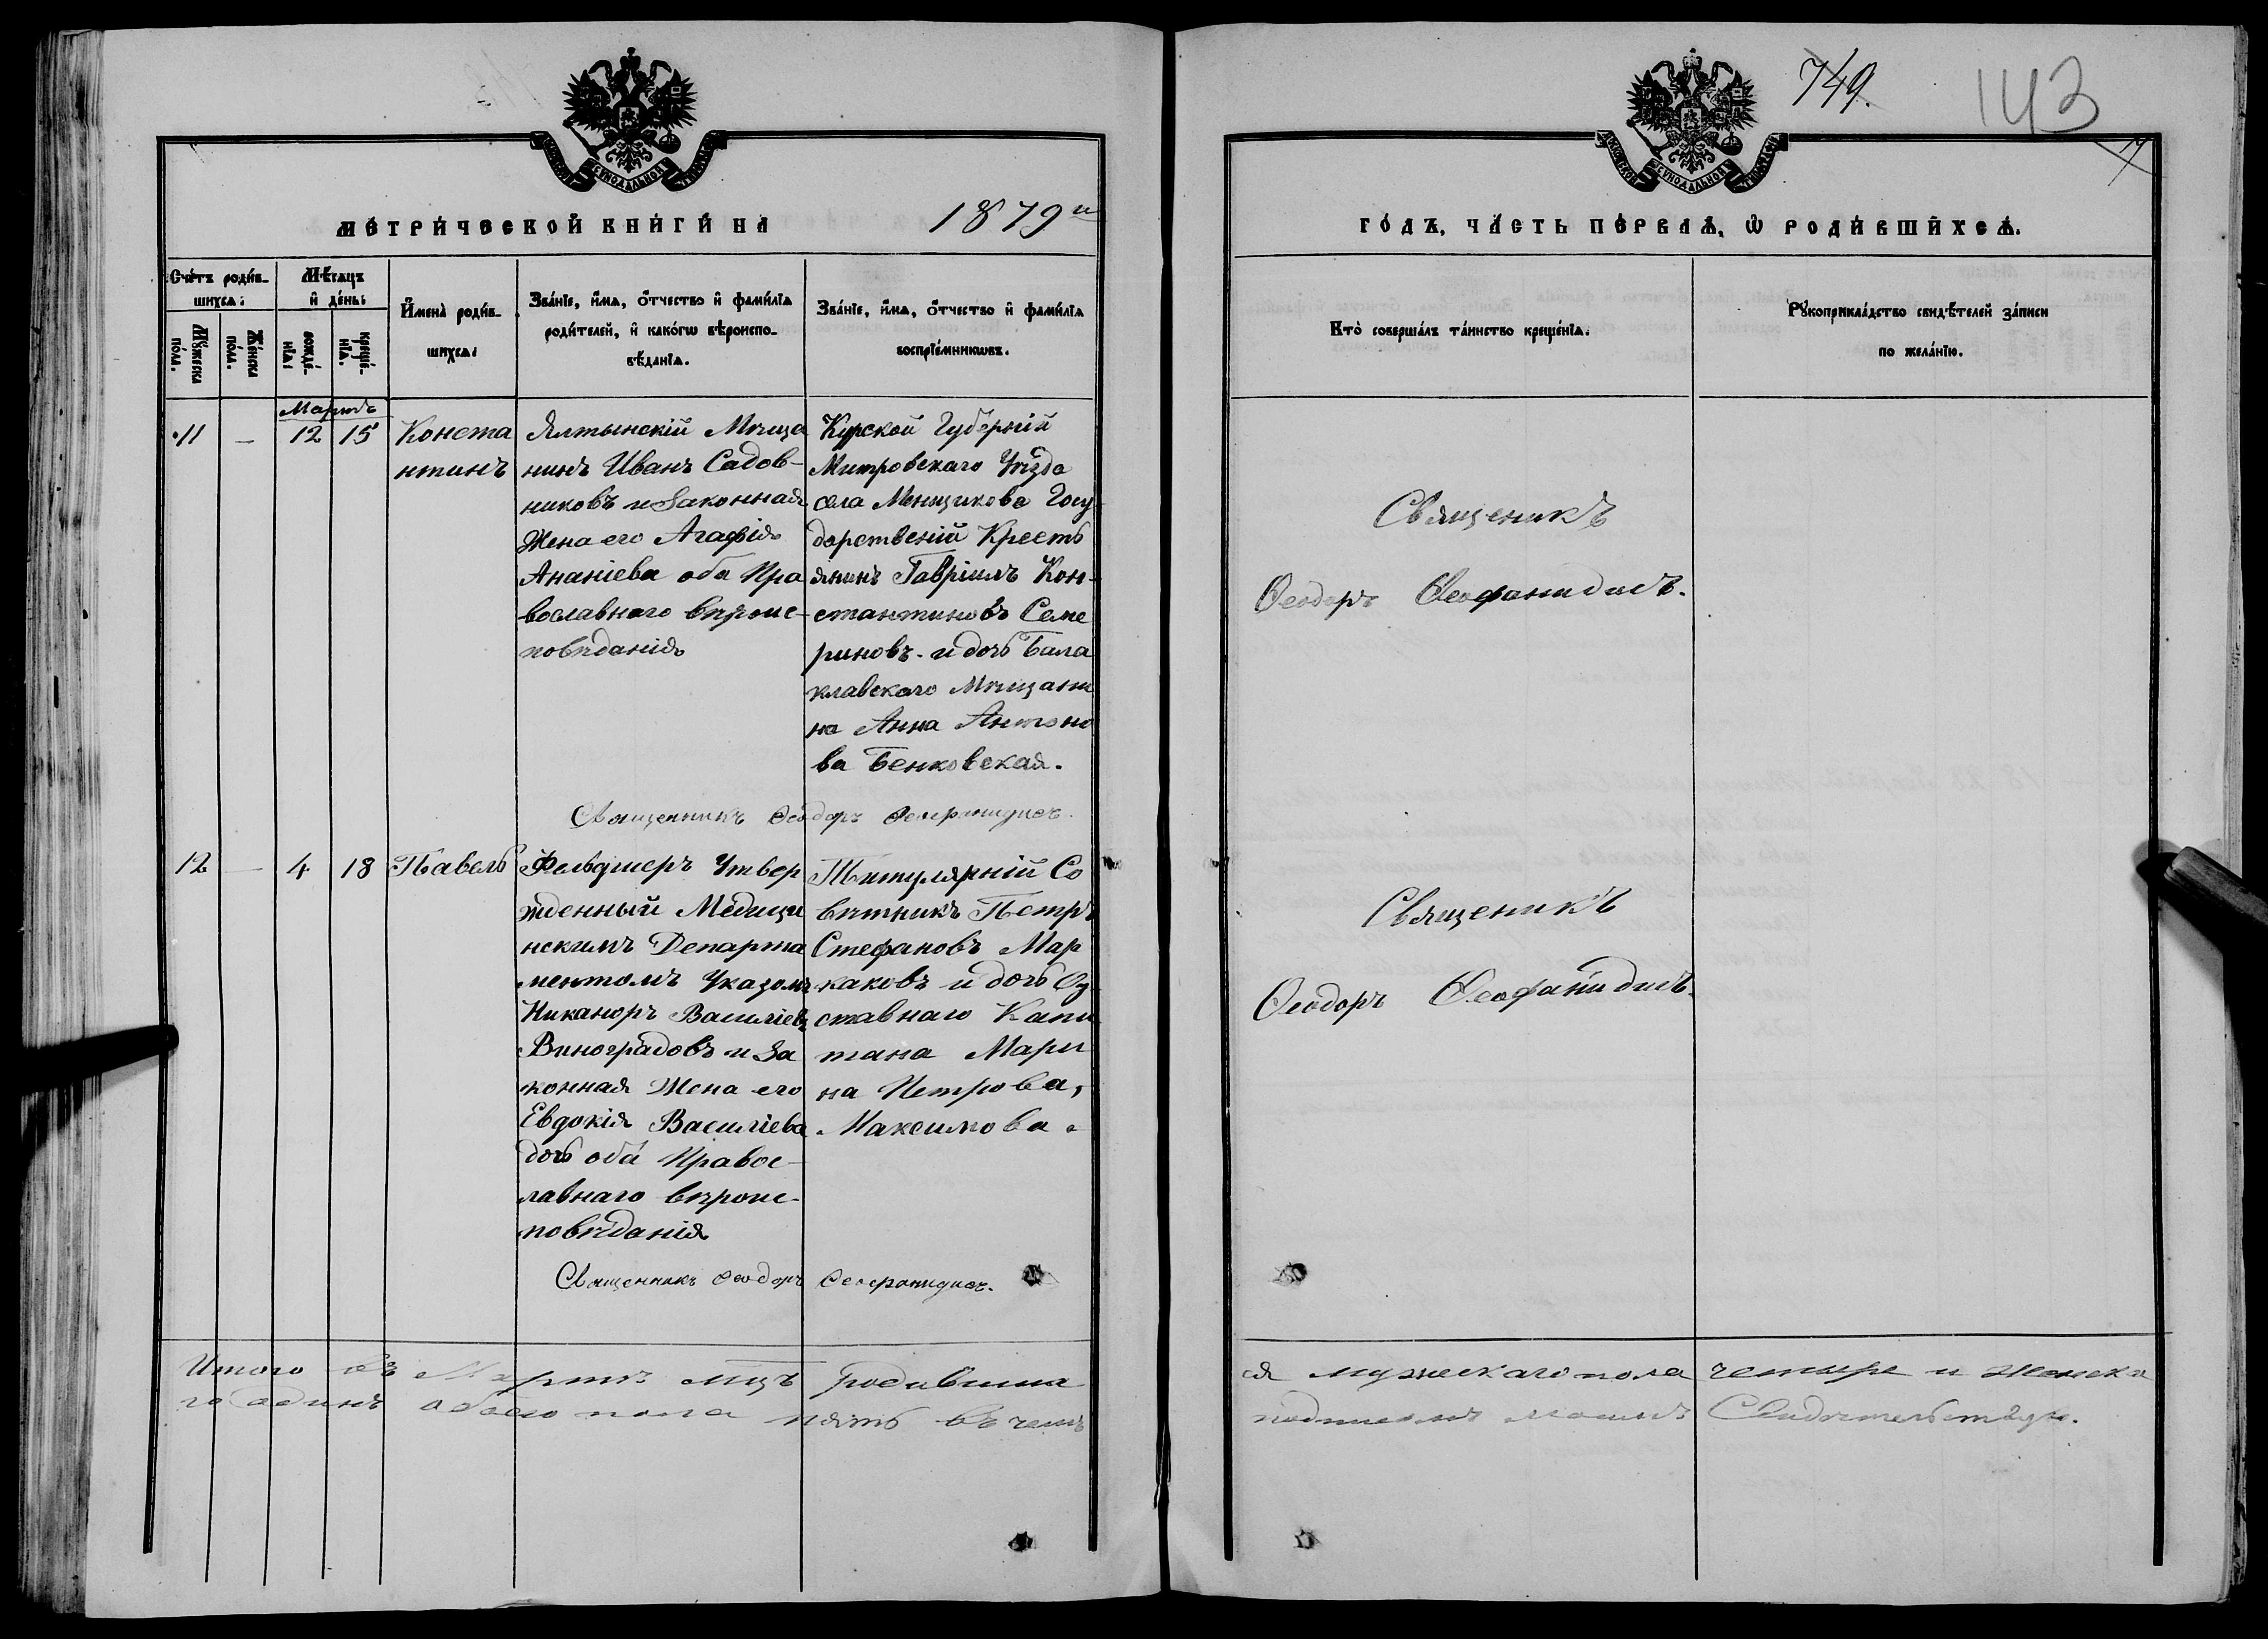 749.
143
7
МЕТРИЧЕСКОЙ КНИГИ НА 1879й
ГОДЪ, ЧАСТЬ ПЕРВАЯ, Ѡ РОДИВШИХСЯ.
Счетъ родив-
шихся:
Мужеска
пола.
Женска
пола.
Мѣсяцъ
и день:
рождé-
нія:
крещé-
нія.
Имена родив-
шихся:
Званіе, имя, отчество и фамилія
родителей, и какогѡ вѣроиспо-
вѣданія.
Званіе, имя, отчество и фамилія
воспріемникѡвъ.
Кто совершалъ таинство крещенія.
Рꙋкоприкладство свидѣтелей записи
по желанію.
Мартъ
11 — 12 15
Конста
нтинъ
Ялтынскій Мѣща
нинъ Иванъ Садов-
никовъ и Законная
Жена его Агафія
Ананіева оба Пра
вославнаго вѣроис-
повѣданія
Курской Губерній
Митровскаго Уѣзда
села Менщикова Госу
дарственій Кресть
янинъ Гавріилъ Кон-
стантиновъ Семе
риновъ. и дочь Бала
клавскаго Мѣщани
на Анна Антоно
ва Бенковская.
Священикъ
Ѳеодоръ Ѳеофанидисъ.
Священникъ Ѳеодоръ Ѳеофанидисъ.
12 — 4 18
Павелъ
Фельдшеръ Утвер
жденный Медици
нскимъ Департа
ментомъ Указомъ
Никаноръ Василіевъ
Виноградовъ и За
конная Жена его
Евдокія Василіева
дочь оба Правос-
лавнаго вѣроис-
повѣданія
Титулярній Со
вѣтникъ Петръ
Стефановъ Мар
каковъ и дочь От
ставнаго Капи
тана Мари
на Петрова,
Максимова.
Священикъ
Ѳеодоръ Ѳеофанидисъ.
Священникъ Ѳеодоръ Ѳеофанидисъ.
Итого въ Мартѣ мцѣ родивши
ся мужескаго пола четыре и Женска
го одинъ обоего пола пять въ чемъ
подписомъ моимъ Свидѣтельствую.